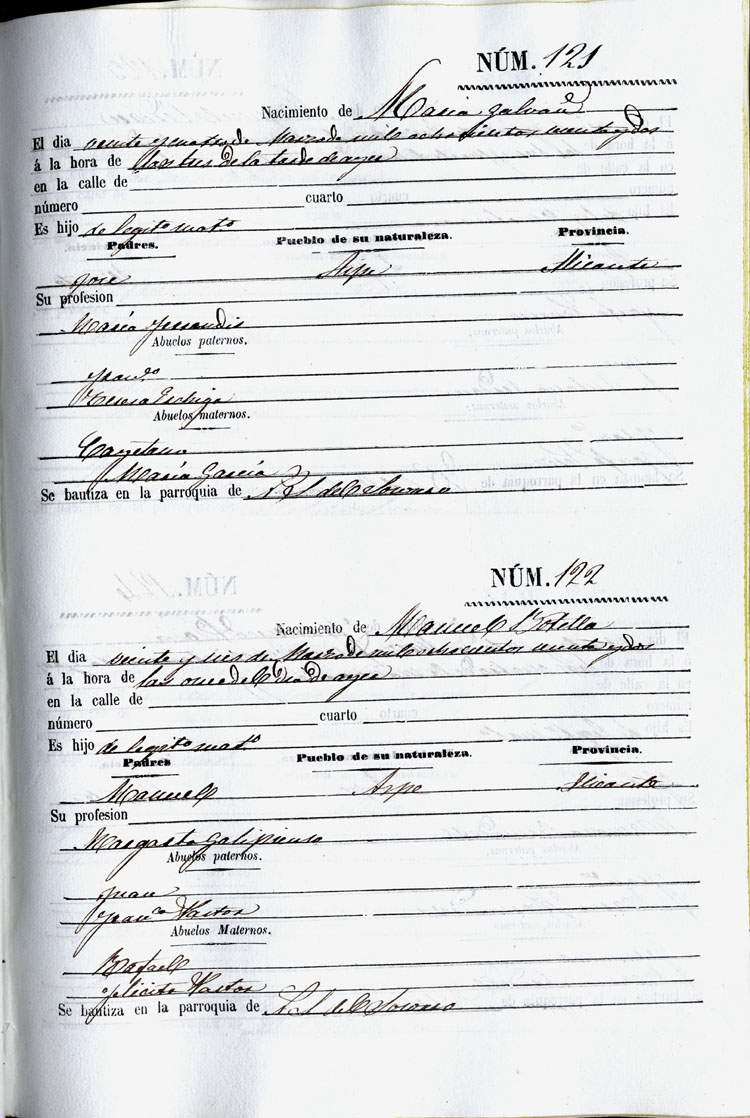 NÚM. 121
Nacimiento de Maria Galvañ
El dia veinte y cuatro de Marzo de mil ochocientos noventa y dos
á la hora de las tres de la tarde de ayer
en la calle de
número cuarto
Es hijo de legito. mato.
Padres. Pueblo de su naturaleza. Provincia.
José Aspe Alicante
Su profesion
María
Abuelos paternos.
Franco.
Teresa
Abuelos maternos.
Cayetano
María García
Se bautiza en la parroquia de N. S. del Socorro
NÚM. 122
Nacimiento de Manuel Botella
El dia veinte y tres de Marzo de mil ochocientos noventa y dos
á la hora de las once del dia de ayer
en la calle de
número cuarto
Es hijo de legito. mato.
Padres Pueblo de su naturaleza. Provincia.
Manuel Aspe Alicante
Su profesion
Margarita Galipienso
Abuelos paternos.
Juan
Franca. Pastor
Abuelos Maternos.
Rafael
Pastor
Se bautiza en la parroquia de N. S. del Socorro